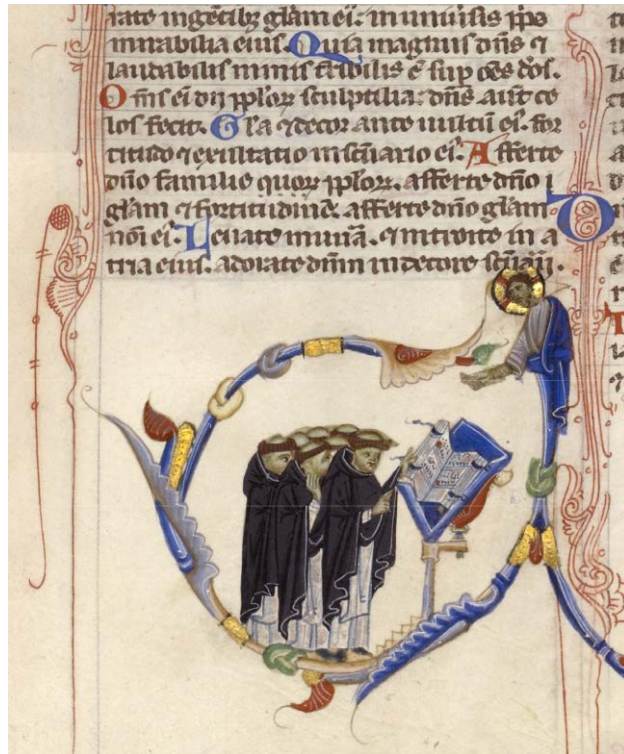 rate ingentibꝫ gl̄am ei᷒. in uniūsis ppo
mirabilia eius. Quia magnus dn̄s ⁊
laudabilis nimis t̄ribilis ē sup oēs dōs.
Om̄s ei dij pploꝝ sculptilia: dn̄s aūt ce
los fecit. Gl̄a ⁊ decor ante uultū ei᷒. for
titudo ⁊ exultatio in sc̄uario ei᷒. Afferte
dn̄o familie quoꝝ pploꝝ. afferte dn̄o i
gl̄am ⁊ fortitudinē. afferte dn̄o gl̄am
noī ei᷒. Leuate mun̄a. ⁊ introite in a
tria eius. adorate dn̄m in decore sc̄uarij.
D